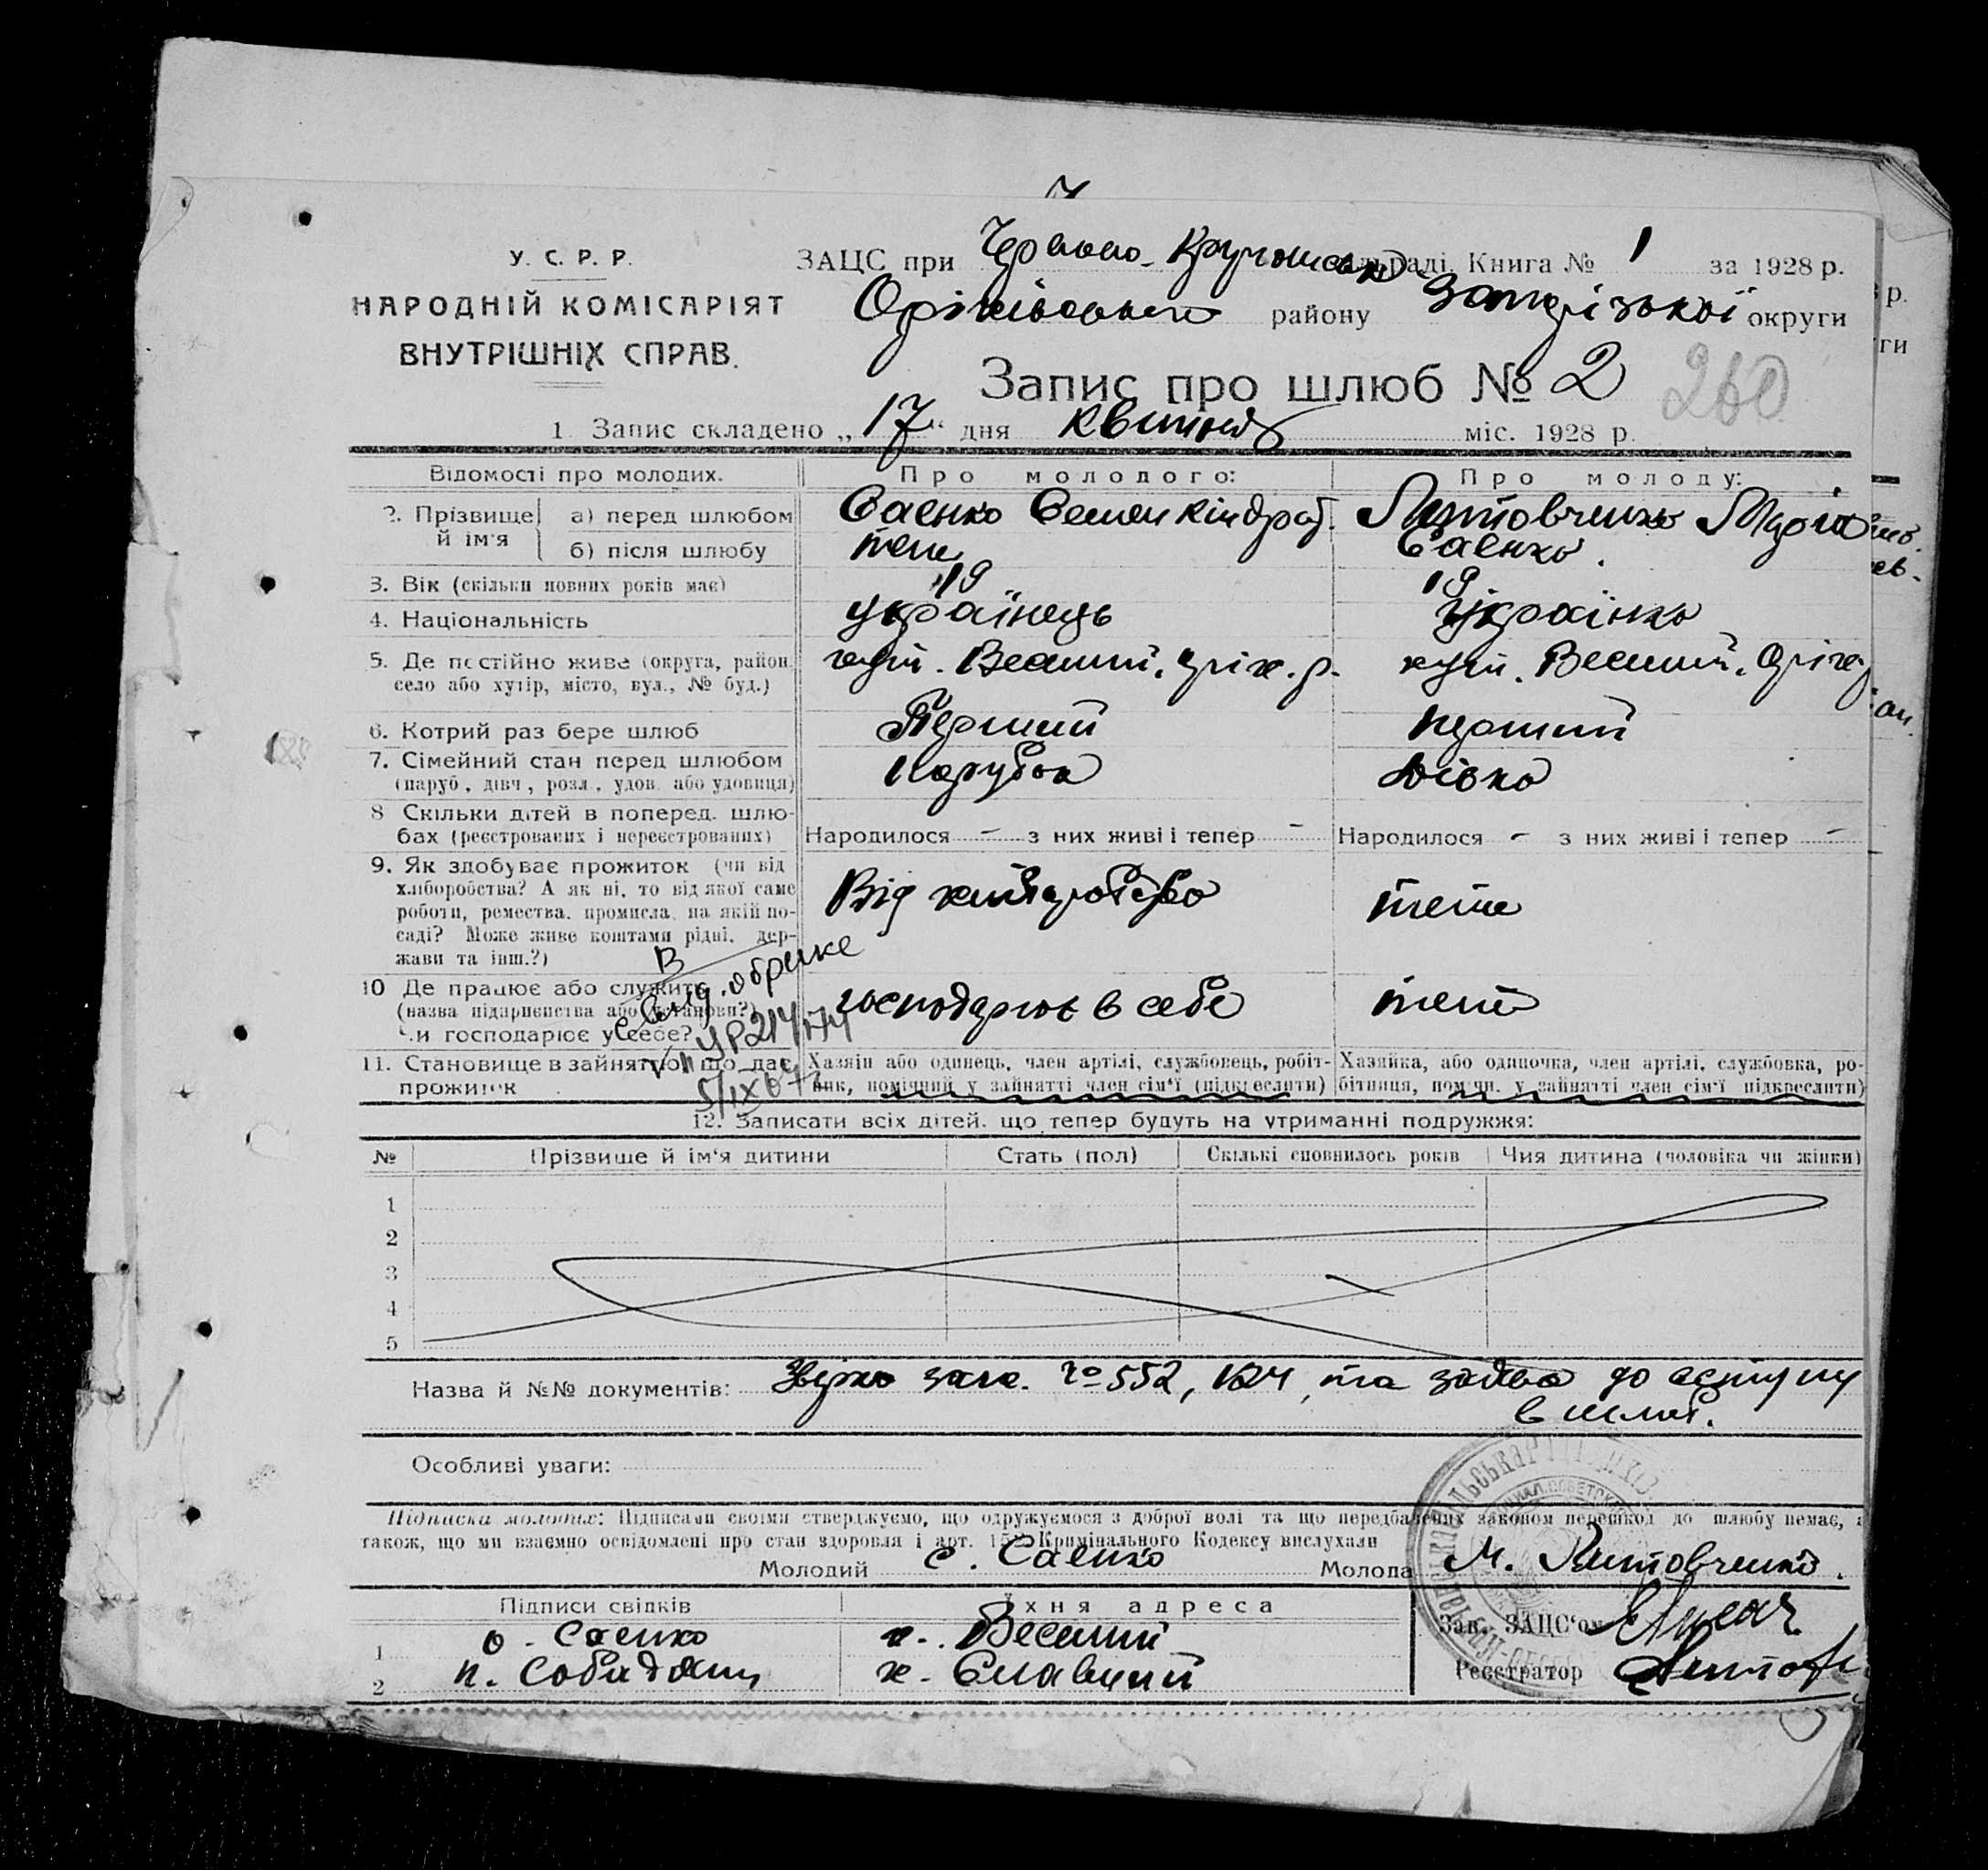 У. С. Р. Р.
НАРОДНІЙ КОМІСАРІЯТ
ВНУТРІШНІХ СПРАВ.
ЗАЦС при Червоно- раді. Книга № 1 за 1928 р.
Оріхівського району Запорізької округи
Запис про шлюб № 2
260
1 Запис складено „17" дня квітня міс. 1928 р.
Відомості про молодих. Про молодого: Про молоду:
2. Прізвище й ім'я а) перед шлюбом Саєнко Семен Кіндрат. Литовченко Марія
б) після шлюбу теж Саєнко.
3. Вік (скільки повних років має) 19 19
4. Національність українець українка
5. Де постійно живе (округа, район, хут. Веселий. Оріх. р. хут. Веселий. Оріх. р
село або хутір, місто, вул., № буд.)
6. Котрий раз бере шлюб Перший перший
7. Сімейний стан перед шлюбом парубок дівка
(паруб., дівч., розл., удов. або удовиця)
8 Скільки дітей в поперед. шлю-
бах (реєстрованих і нереєстрованих) Народилося - з них живі і тепер - Народилося - з них живі і тепер -
9. Як здобуває прожиток (чи від
хліборобства? А як ні, то від якої саме Від теж
роботи, ремества, промисла, на якій по-
саді? Може живе коштами рідні, дер-
жави та інш.?)
10 Де працює або служить господарює в себе теж
(назва підприємства або установи?)
Чи господарює у себе?
11. Становище в зайнятю, що дає Хазяїн або одинець, член артілі, службовець, робіт- Хазяйка, або одиночка, член артілі, службовка, ро-
прожиток ник, помічний у зайнятті член сім'ї (підкреслити) бітниця, помічн. у зайнятті член сім'ї підкреслити)
12. Записати всіх дітей, що тепер будуть на утриманні подружжя:
№ Прізвище й ім'я дитини Стать (пол) Скількі сповнилось років Чия дитина (чоловіка чи жінки)
1
2
3
4
5
Назва й №№ документів: № 552, та заява до вступу
в шлюб.
Особливі уваги:
Підписка молодих: Підписами своїми стверджуємо, що одружуємося з доброї волі та що передбачених законом перешкод до шлюбу немає, а
також, що ми взаємно освідомлені про стан здоровля і арт. Кримінального Кодексу вислухали
Молодий С. Саєнко Молода М. Литовченко.
Підписи свідків Їхня адреса Зав. ЗАЦС'ом
1 О. Саєнко х. Веселий
2 П. х. Реєстратор